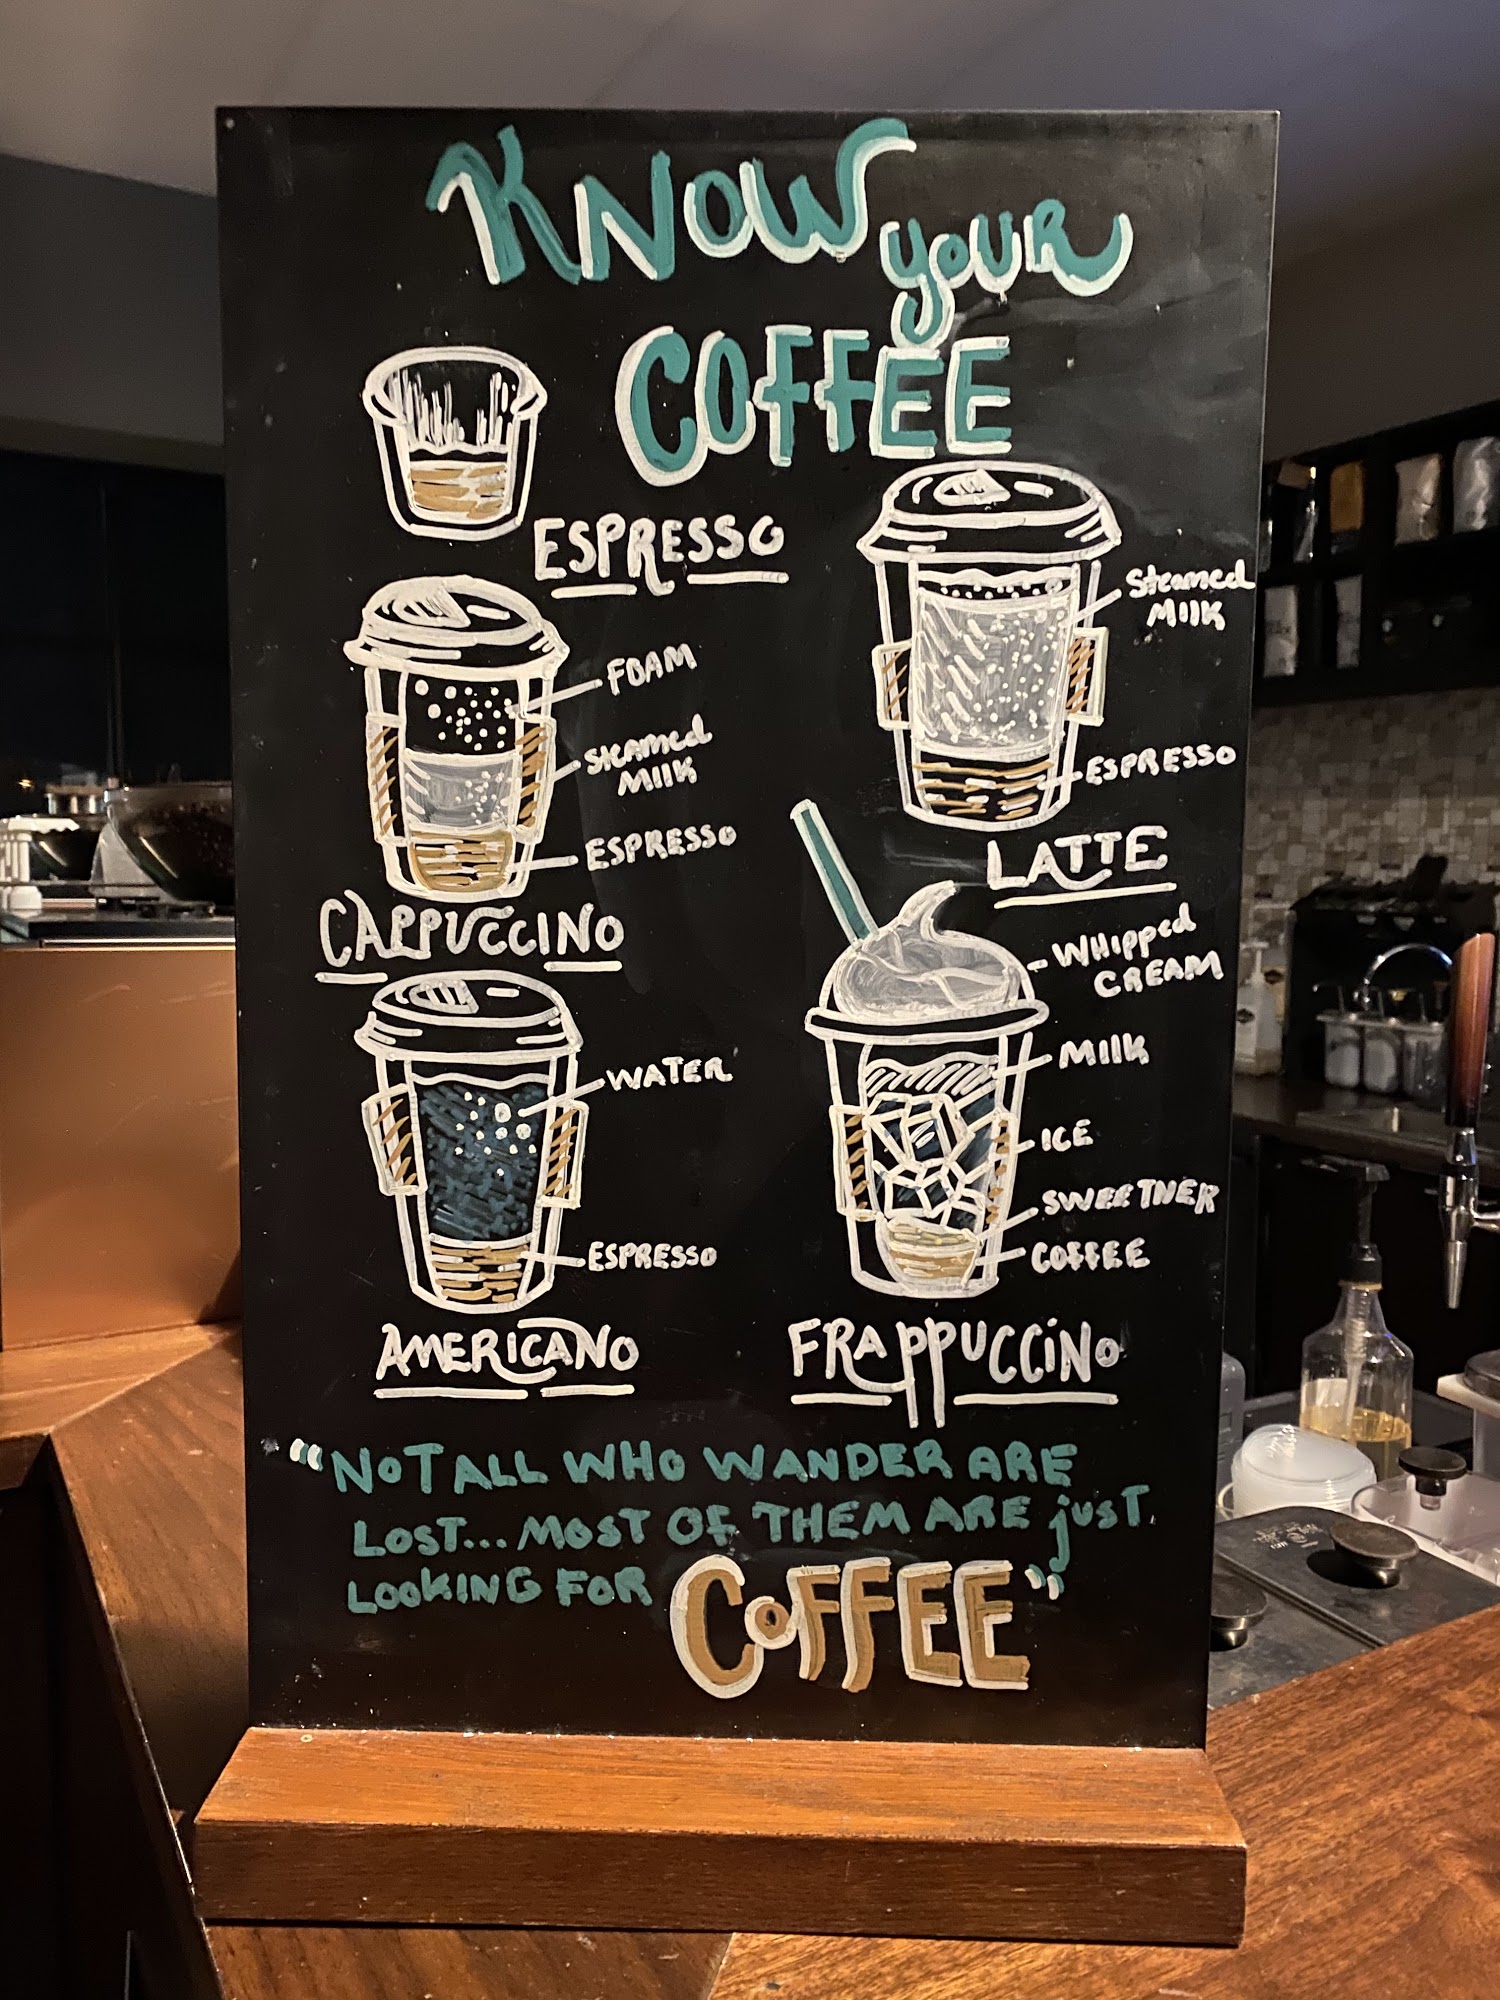 KNOW your
COFFEE
ESPRESSO
Steamed
Milk
ESPRESSO
LATTE
FOAM
Steamed
Milk
ESPRESSO
CAPPUCCINO
WHipped
CREAM
Milk
ICE
SWEETNER
COFFEE
FRAppUCCiNo
WATER
ESPRESSO
AMERICANO
"NOT ALL WHO WANDER ARE
LOST... MOST OF THEM ARE jUST
LOOKING FOR COFFEE"